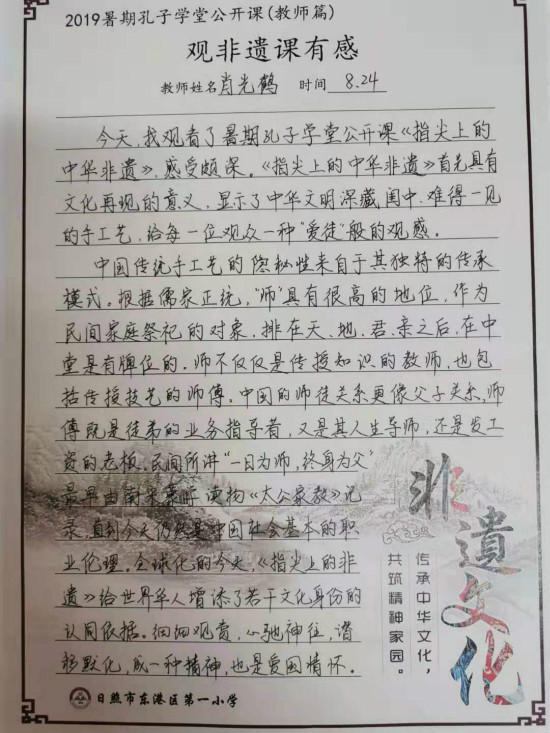 2019暑期孔子学堂公开课(教师篇)
观非遗课有感
教师姓名 肖光鹤 时间 8.24
今天，我观看了暑期孔子学堂公开课《指尖上的
中华非遗》，感受颇深。《指尖上的中华非遗》首先具有
文化再现的意义，显示了中华文明深藏闺中、难得一见
的手工艺，给每一位观众一种“爱徒”般的观感。
中国传统手工艺的隐秘性来自于其独特的传承
模式。根据儒家正统，“师”具有很高的地位，作为
民间家庭祭祀的对象，排在天、地、君、亲之后，在中
堂是有牌位的。师不仅仅是传授知识的教师，也包
括传授技艺的师傅。中国的师徒关系更像父子关系，师
傅既是徒弟的业务指导者，又是其人生导师，还是发工
资的老板。民间所讲“一日为师，终身为父”
最早由南宋蒙学读物《太公家教》记
录，直到今天仍然是中国社会基本的职
业伦理。全球化的今天，《指尖上的非
遗》给世界华人增添了若干文化身份的
认同依据。细细观赏，心驰神往，潜
移默化，成一种精神，也是爱国情怀。
非遗文化
传承中华文化，
共筑精神家园。
日照市东港区第一小学